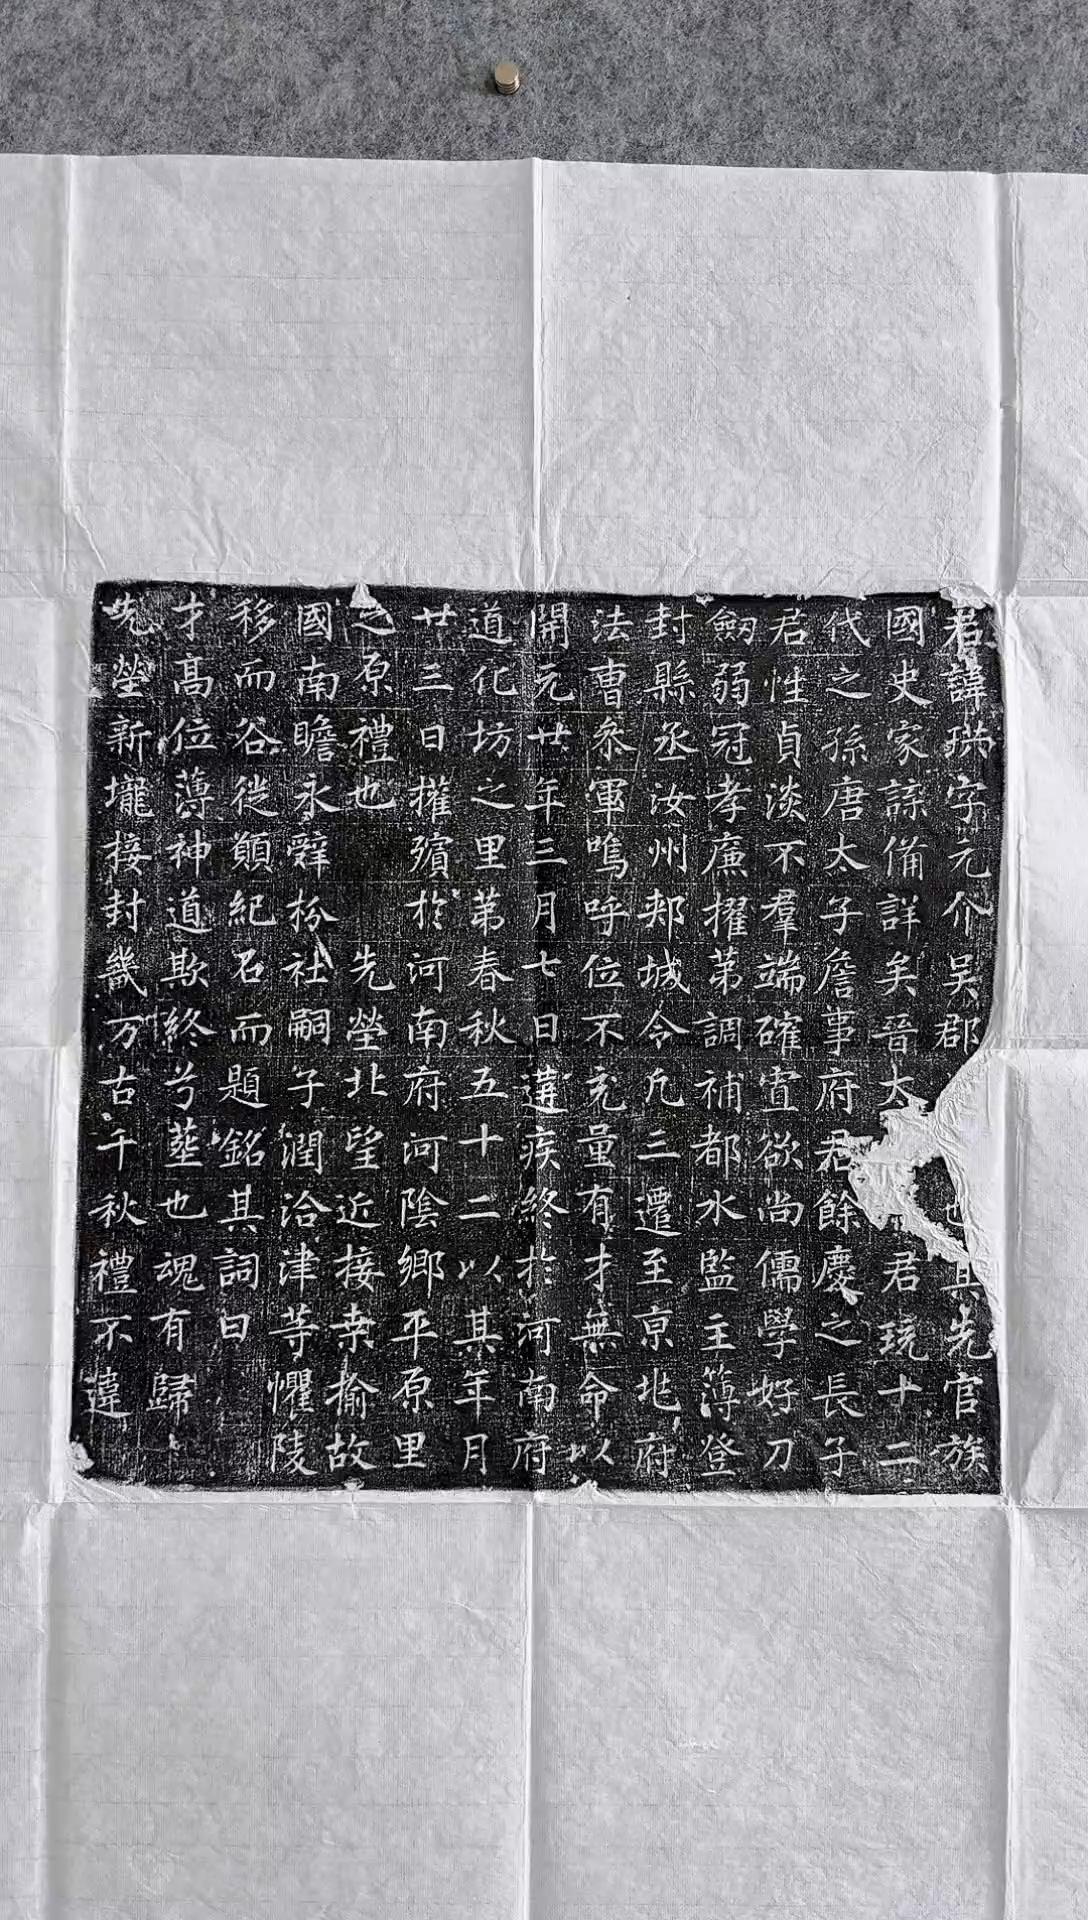 君諱珙字元介吳郡也其先官族
國史家諜備詳矣晉太君玩十二
代之孫唐太子詹事府君餘慶之長子
君性貞淡不羣端確寡欲尚儒學好刀
劒弱冠孝廉擢第調補都水監主簿登
封縣丞汝州郟城令凡三遷至京地府
法曹叅軍嗚呼位不充量有才無命以
開元廿年三月七日遘疾終於河南府
道化坊之里第春秋五十二以其年月
廿三日權殯於河南府河陰鄉平原里
之原禮也先塋北望近接桑揄故
國南瞻永辭枌社嗣子潤洽津等懼陵
移而谷徙願紀石而題銘其詞曰
才高位薄神道欺終兮塟也魂有歸
先塋新壠接封畿万古千秋禮不違